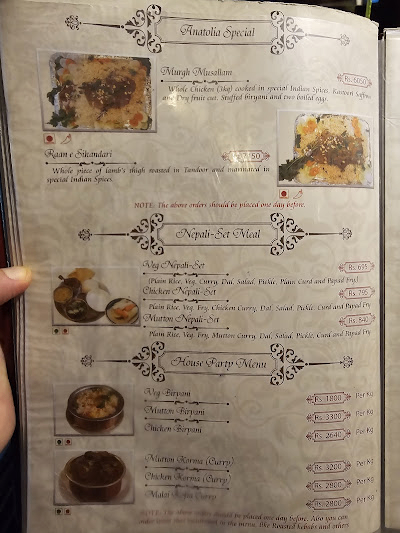 Anatolia Special
Murgh Musallam
Rs. 6050
Whole Chicken (1kg) cooked in special Indian Spices, Kasoori Saffron
and Dry fruit out. Stuffed biryani and two boiled eggs.
Raan e Sikandari
Whole piece of lamb's thigh roased in Tandoor and marinated in
special Indian Spices
NOTE: The above orders should be placed one day before.
Nepali-Set Meal
Veg Nepali-Set
Rs. 695
(Plain Rice, Veg, Curry, Dal, Salad, Pickle, Plain Curd and Papad Fry)
Chicken Nepali-Set
Rs. 795
Plain Rice, Veg. Fry, Chicken Curry, Dal, Salad, Pickle, Curd and Papad Fry
Mutton Nepali-Set
Rs. 840
Plain Rice, Veg. Fry, Mutton Curry, Dal, Salad, Pickle, Curd and Papad Fry
House Party Menu
Veg-Biryani
Rs. 1800 Per Kg
Mutton Biryani
Rs. 3300 Per Kg
Chicken Biryani
Rs. 2640 Per Kg
Mutton Korma (Curry)
Rs. 3200 Per Kg
Chicken Korma (Curry)
Rs. 2900 Per Kg
Malai Kofta Curry
Rs. 2800 Per Kg
NOTE: The above orders should be placed one day before. Also you can
the menu, like Roasted kebabs and others